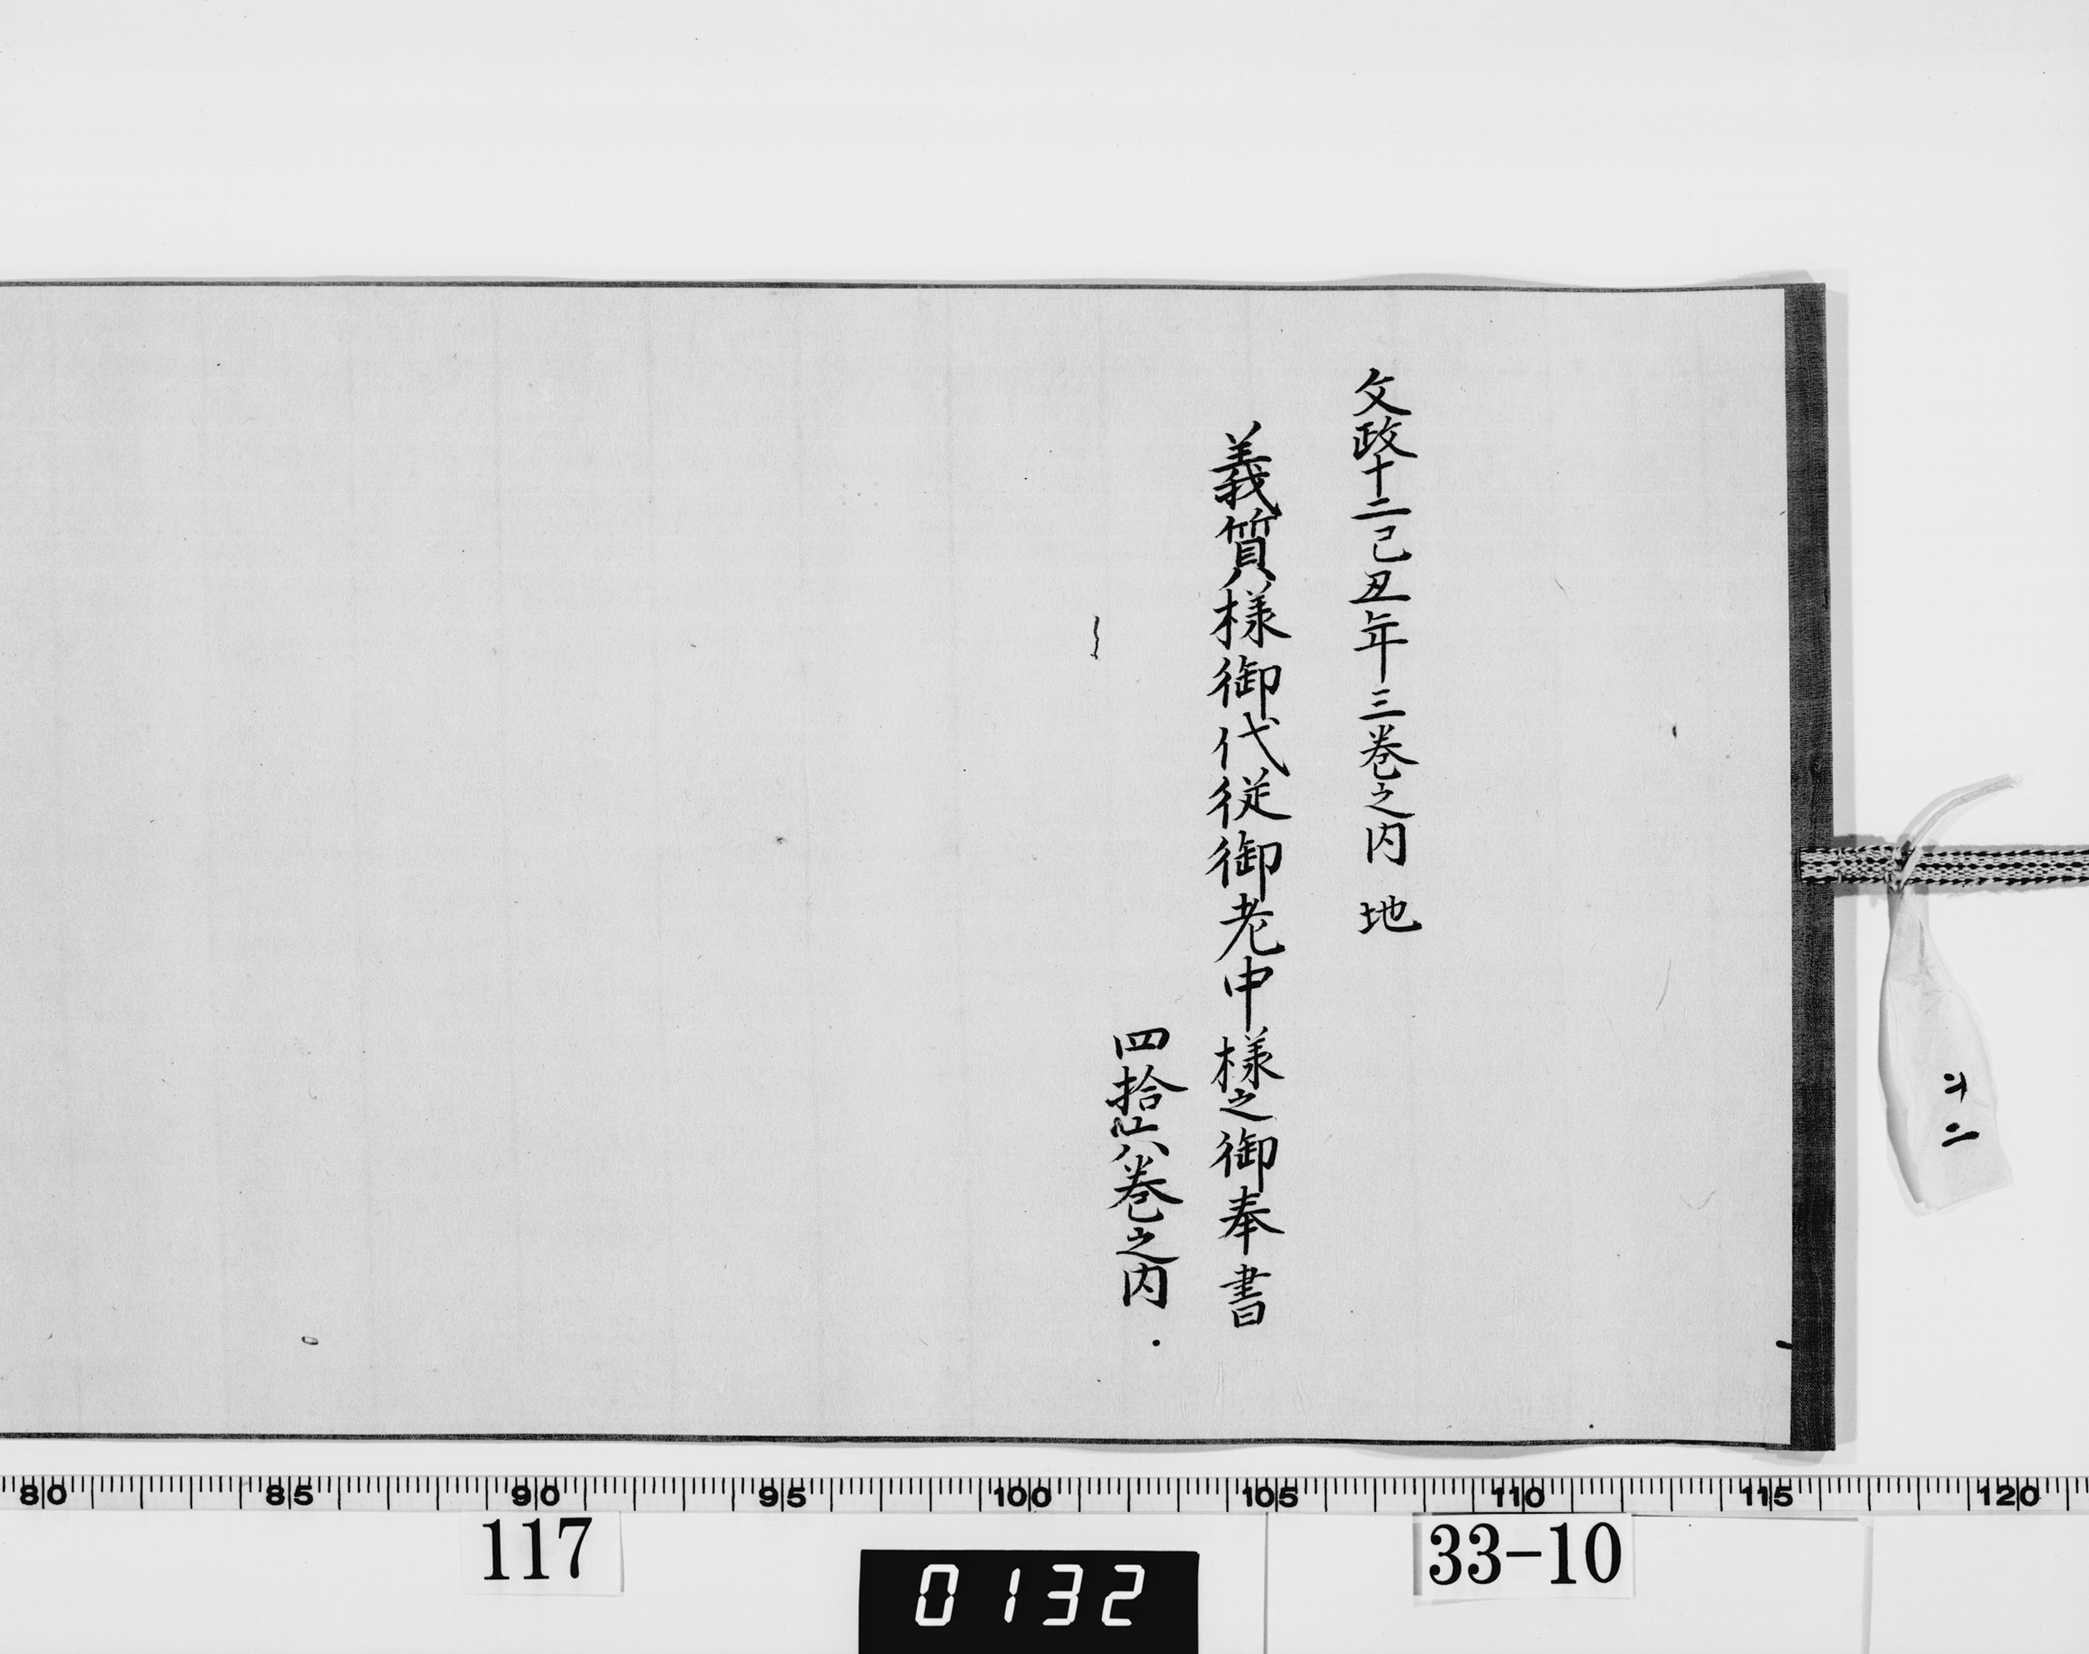 文政十二己丑年三巻之内 地
義質様御代従御老中様之御奉書
四拾六巻之内
80 85 90 95 100 105 110 115 120
117
0132
33-10